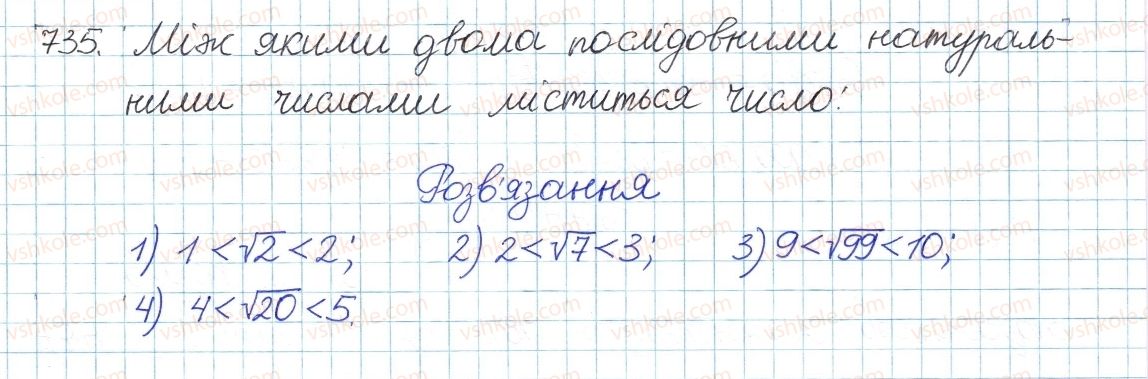 735. Між якими двома послідовними натураль-
ними числами міститься число:
Розв'язання
1) 1<√2<2; 2) 2<√7<3; 3) 9<√99<10;
4) 4<√20<5.